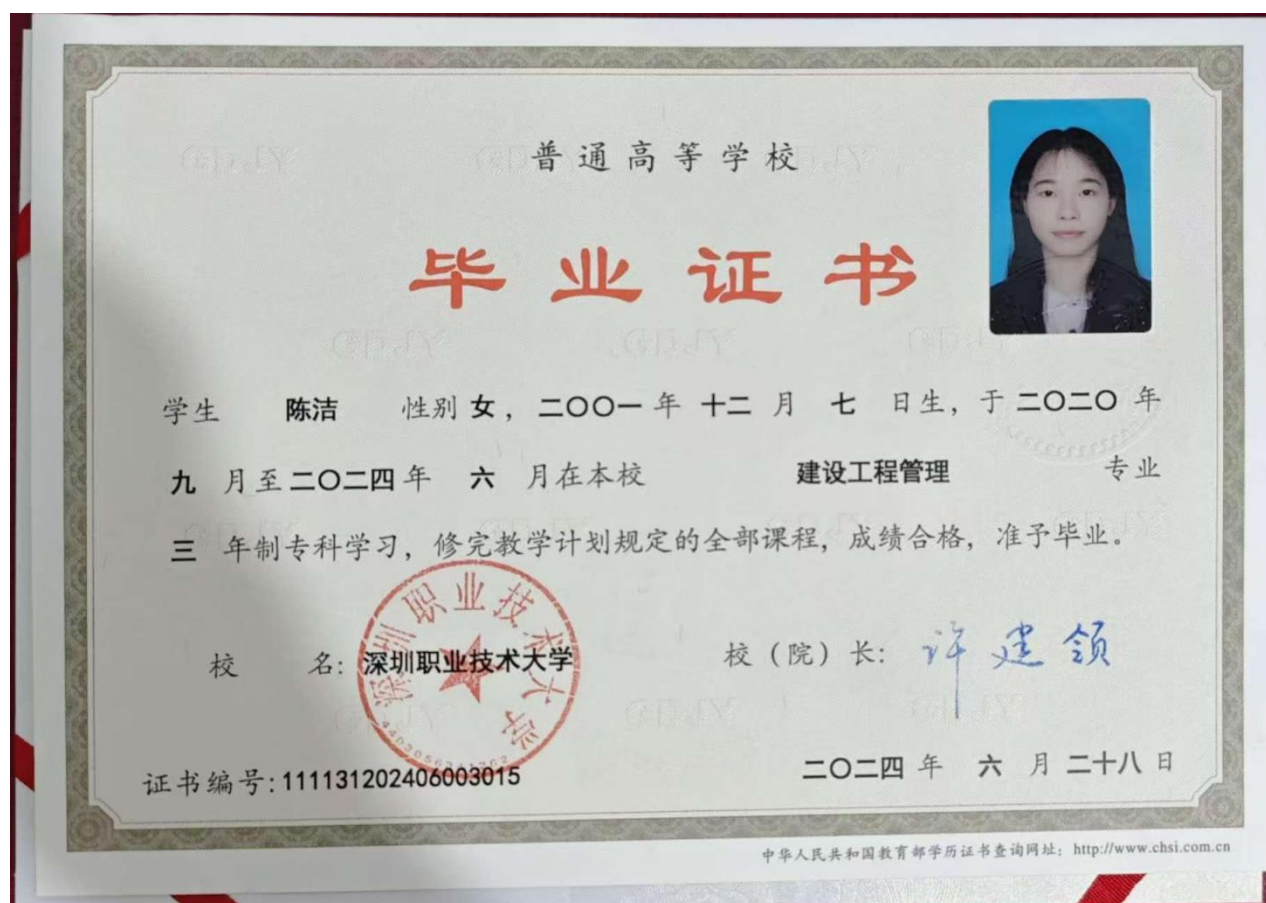 普通高等学校
毕业证书
学生 陈洁 性别 女，二〇〇一 年 十二 月 七 日生，于 二〇二〇 年
九 月至 二〇二四 年 六 月在本校 建设工程管理 专业
三 年制专科学习，修完教学计划规定的全部课程，成绩合格，准予毕业。
深圳职业技术大学
校 名：深圳职业技术大学
校（院）长：许建领
证书编号：111131202406003015
二〇二四 年 六 月 二十八 日
中华人民共和国教育部学历证书查询网址：http://www.chsi.com.cn